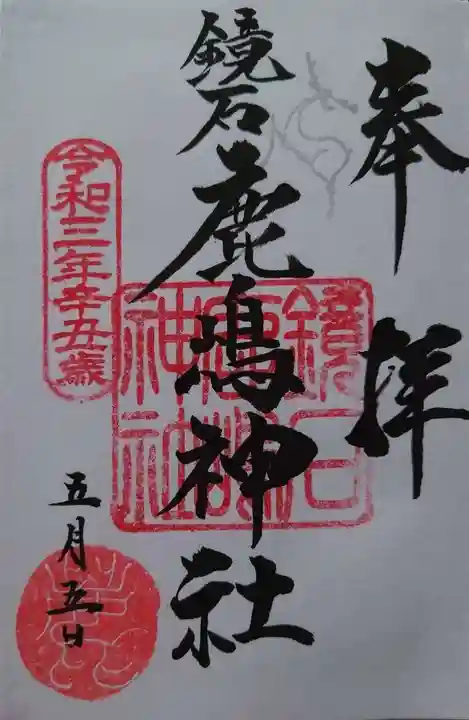 奉拝
鏡石
鹿嶋神社
鏡石
鹿嶋
神社
令和三年辛丑歳
五月五日